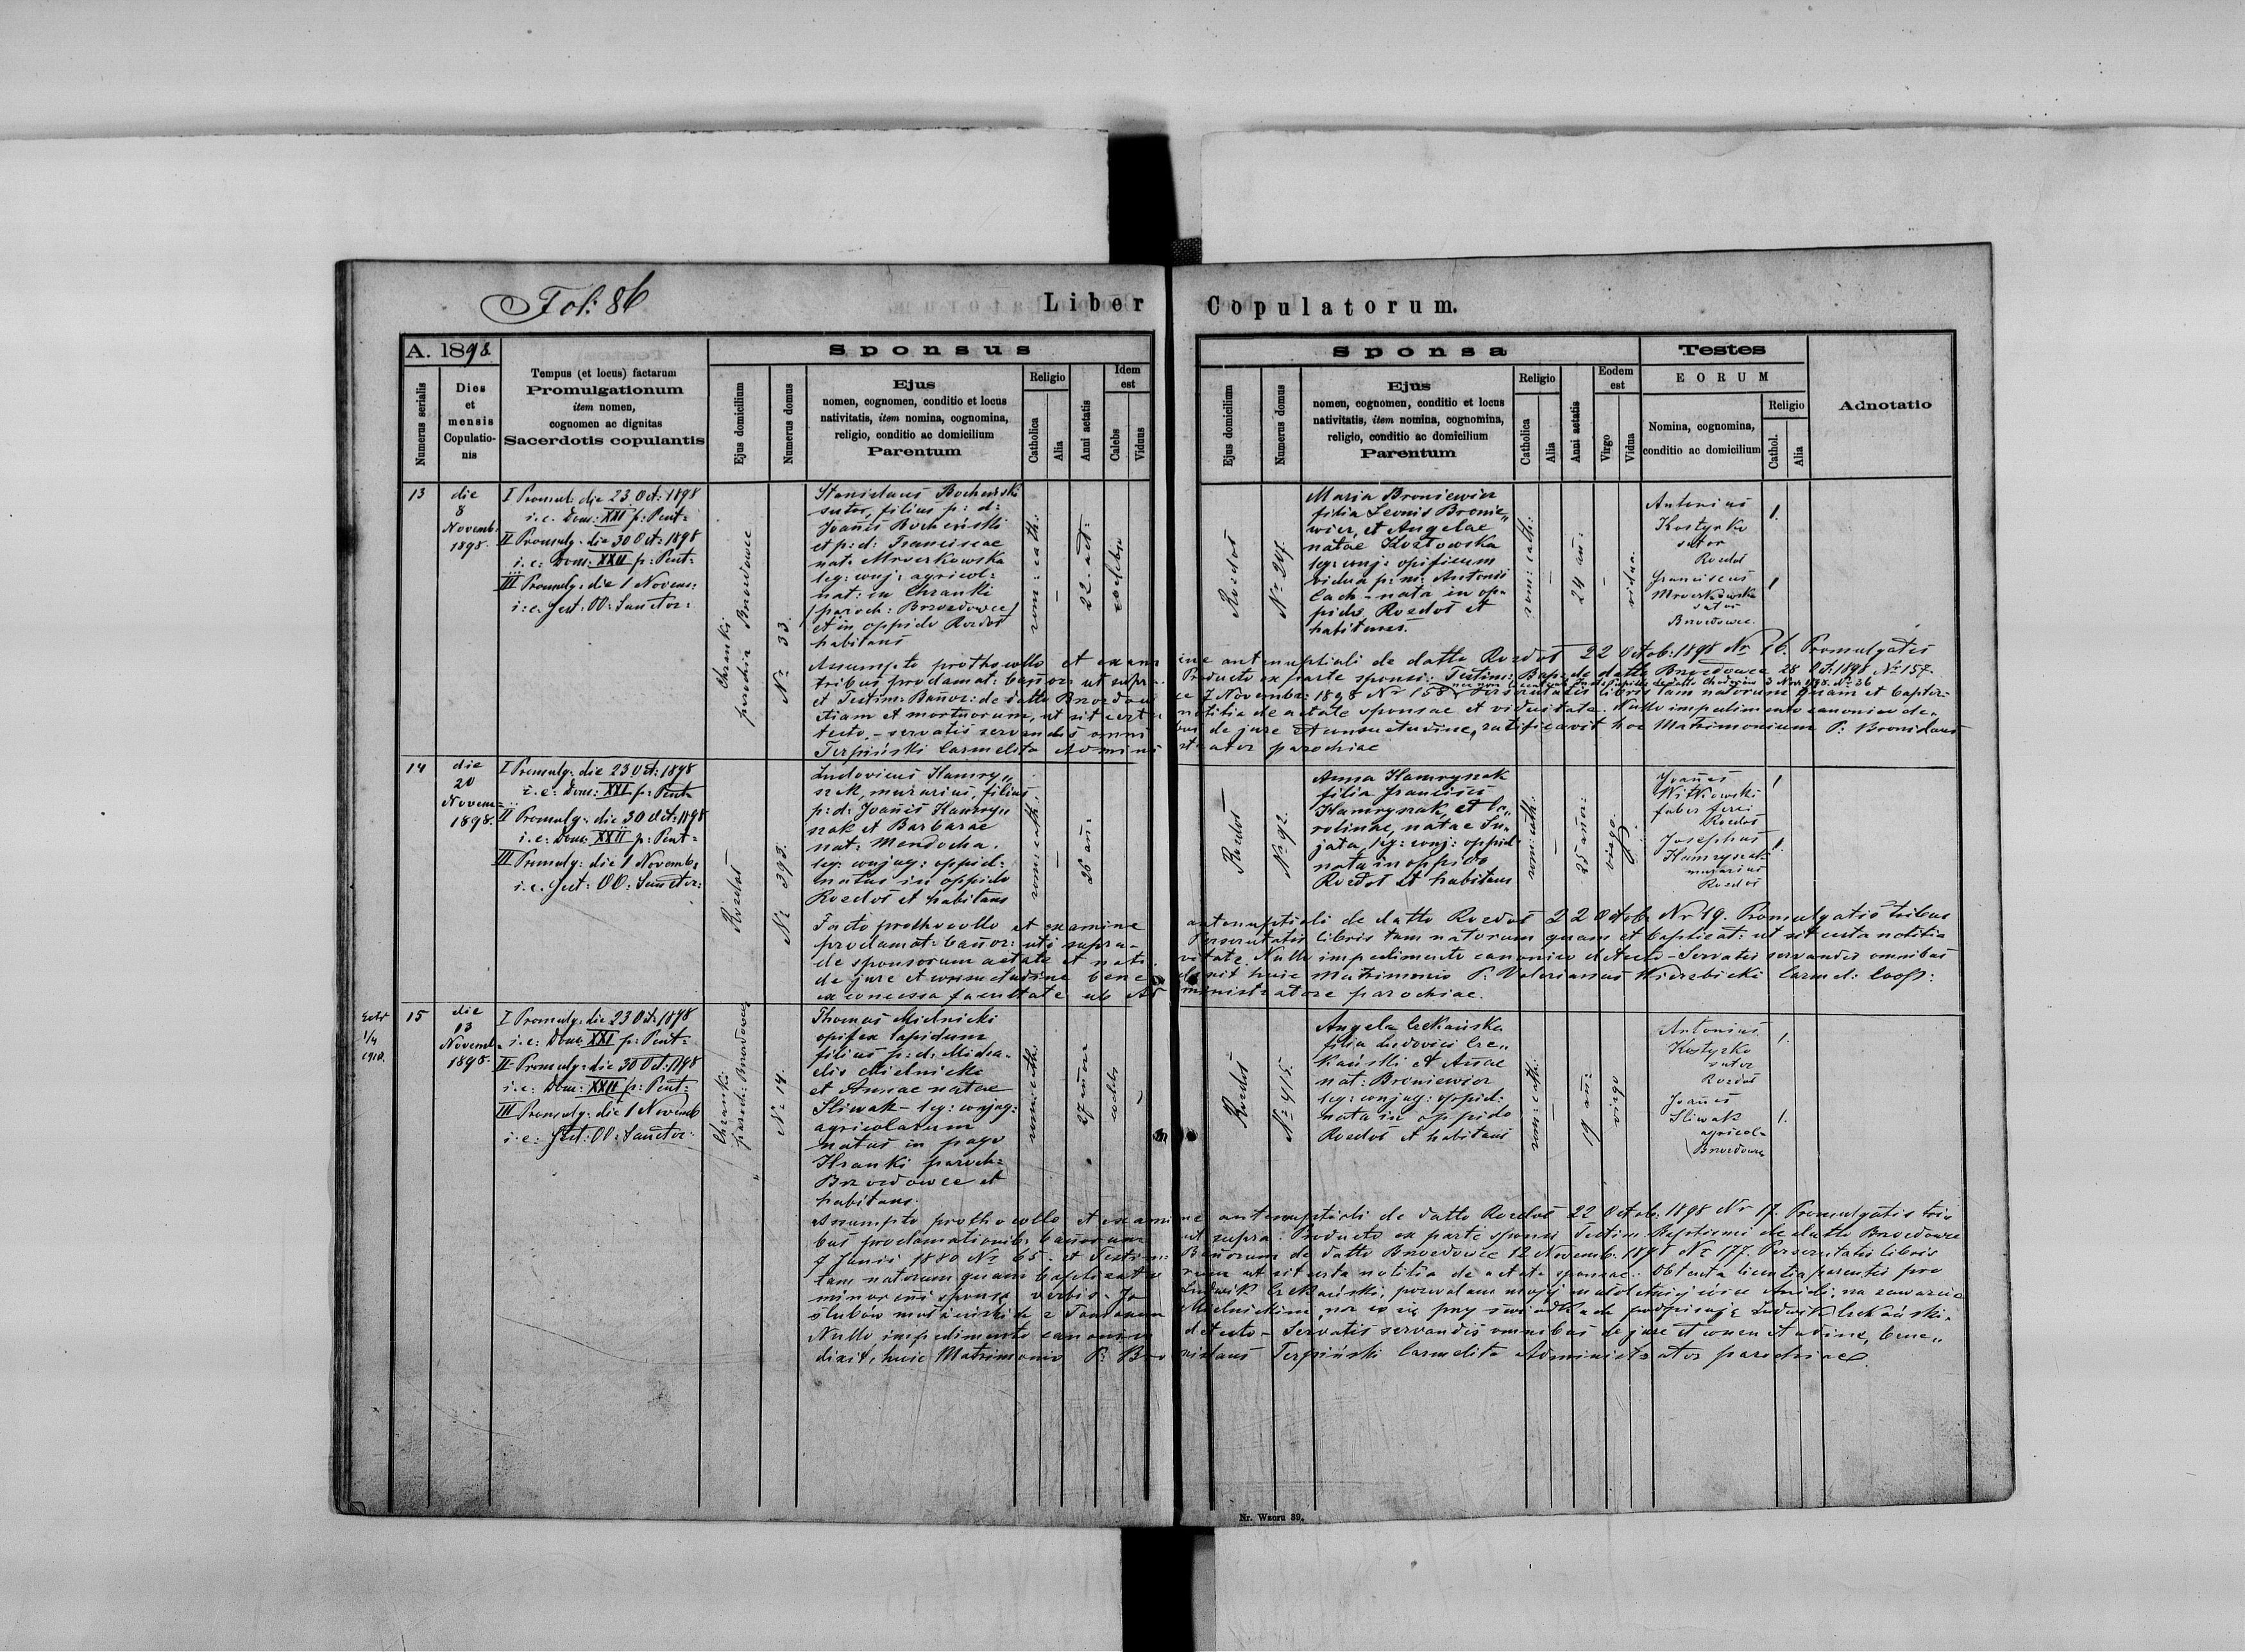 Fol: 86
Liber Copulatorum.
A. 1898
Sponsus
Sponsa
Testes
Numerus serialis
Dies
et
mensis
Copulatio-
nis
Tempus (et locus) factarum
Promulgationum
item nomen,
cognomen ac dignitas
Sacerdotis copulantis
Ejus domicilium
Numerus domus
Ejus
nomen, cognomen, conditio et locus
nativitatis, item nomina, cognomina,
religio, conditio ac domicilium
Parentum
Religio
Catholica
Alia
Anni aetatis
Idem
est
Calebs
Viduus
Ejus domicilium
Numerus domus
Ejus
nomen, cognomen, conditio et locus
nativitatis, item nomina, cognomina,
religio, conditio ac domicilium
Parentum
Religio
Catholica
Alia
Anni aetatis
Eodem
est
Virgo
Vidua
EORUM
Nomina, cognomina,
conditio ac domicilium
Religio
Cathol.
Alia
Adnotatio
13
die
8
Novemb.
1898.
I Promul: die 23 Oct: 1898
i. e. Dom: XXI p: Pent=
II Promulg: die 30 Oct: 1898
i. e: Dom: XXII p: Pent=
III Promulg: die 1 Novem:
i: e. fest: OO: Sanctor:
Chranki
parochia Brzozdowce
Nº 33.
Stanislaus Bocheński
sutor, filius p: d:
Joannis Bocheński
et p: d: Franciscae
nat: Mroczkowska
leg: conj: agricol:
nat: in Chranki
(paroch: Brzozdowce)
et in oppido Rozdoł
habitans
rom: cath:
22 aet:
coelebs
Rozdoł
Nº 207.
Maria Broniewicz
filia Leonis Bronie„
wicz, et Angelae
natae Kozłowska
leg: conj: opificum
vidua p: m: Antonii
Lach - nata in op-
pido Rozdoł et
habitans.
rom: cath:
24 an:
vidua.
Antonius
Kostyrko
sutor
Rozdoł
1.
Franciscus
Mroczkowski
sutor
Brzozdowce.
1
Assumpto prothocollo et examine antenuptiali de datto Rozdoł 22 Octob: 1898 Nr 16. Promulgatis
tribus proclamat: bannor: ut supra. Producto ex parte sponsi: Testim: Bapt: de datto Brzozdowce 28 Oct: 1898 Nº 157.
et Testim: Bannor: de datto Brzozdowce 7 Novembr: 1898 Nº 158 Perscrutatis libris tam natorum quam et baptiz:
etiam et mortuorum, ut sit certa notitia de aetate sponsae et viduitate. Nullo impedimento canonico de„
tecto, - servatis servandis omnibus de jure et consuetudine, ratificavit hoc Matrimonium P: Bronislaus
Terpiński Carmelita Administrator parochiae
14
die
20
Novem=
1898.
I Promulg: die 23 Oct: 1898
i. e: Dom: XXI p: Pent=
II Promulg: die 30 Oct: 1898
i. e: Dom: XXII p: Pent=
III Promulg: die 1 Novemb:
i. e. fest: OO: Sanctor:
Rozdoł
Nº 393.
Ludovicus Hamry„
szak, murarius, filius
p: d: Joannis Hamry„
szak et Barbarae
nat: Mendocha.
leg: conjug: oppid:
natus in oppido
Rozdoł et habitans
rom: cath:
25 an:
Rozdoł
Nº 92.
Anna Hamryszak
filia Francisci
Hamryszak, et Ca„
rolinae, natae Su„
jata, leg: conj: oppid:
nata in oppido
Rozdoł et habitans
rom: cath:
25 annor:
virgo.
Joannes
Witkowski
faber ferri
Rozdoł
1
Josephus
Hamryszak
murarius
Rozdoł
1.
Facto prothocollo et examine antenuptiali de datto Rozdoł 22 Octob: Nr 19. Promulgatis tribus
proclamat: bannor: uti supra- Perscrutatis libris tam natorum quam et baptizat: ut sit certa notitia
de sponsorum aetate et nativitate. Nullo impedimento canonico detecto - Servatis servandis omnibus
de jure et consuetudine benedixit huic Matrimonio P: Valerianus Wierzbicki Carmel: Coop:
ex concessa facultate ab Administratore parochiae.
15
die
13
Novemb.
1898.
I Promulg: die 23 Oct: 1898
i. e: Dom: XXI p: Pent=
II Promulg: die 30 Oct: 1898
i. e: Dom: XXII p: Pent:
III Promulg: die 1 Novemb
i. e: fest: OO: Sanctor:
Chranki
paroch: Brzozdowce
Nº 14.
Thomas Mielnicki
opifex lapidum
filius p: d: Micha-
elis Mielnicki
et Annae natae
Sliwak - leg: conjug:
agricolarum
natus in pago
Hranki paroch:
Brzozdowce et
habitans.
rom: cath:
27 annor:
coelebs
Rozdoł
Nº 415.
Angela Czekańska
filia Ludovici Cze„
kański et Annae
nat: Broniewicz
leg: conjug: oppid:
nata in oppido
Rozdoł et habitans
rom: cath:
19 an:
virgo
Antonius
Kostyrko
sutor
Rozdoł
1.
Joannes
Sliwak
agricol=
Brzozdowce
1.
Assumpto prothocollo et examine antenuptiali de datto Rozdoł 22 Octob: 1898 Nr 17. Promulgatis tri„
bus proclamationib: bannorum ut supra: Producto ex parte sponsi Testim: Baptismi de datto Brzozdowce
7 Junii 1880 Nº 65. et Testim: Bannorum de datto Brzozdowce 12 Novemb: 1898 Nº 177. Perscrutatis libris
tam natorum quam baptizatorum ut sit certa notitia de aetate sponsae. Obtenta licentia parentis pro
minoreni sponsa verbis: Ja Ludwik Czekański, pozwalam mojej małoletniej córce Anieli, na zawarcie
ślubów małżeńskich z Tomaszem Mielnickim, na co się przy świadkach podpisuję Ludwik Czekański.
Nullo impedimento canonico detecto - Servatis servandis omnibus de jure et consuetudine, bene„
dixit, huic Matrimonio P: Bronislaus Terpiński Carmelita Administrator parochiae.
Nr. Wzoru 89.